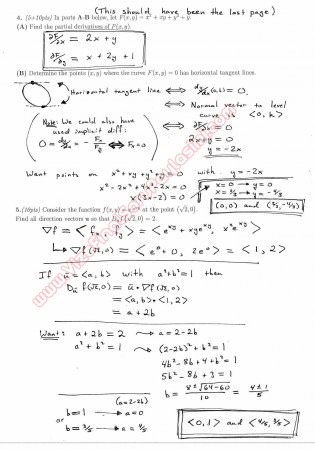 (This should have been the last page)
4. (5+10pts) In parts A-B below, let F(x, y) = x² + xy + y² + y.
(A) Find the partial derivatives of F(x, y).
∂F/∂x = 2x + y
∂F/∂y = x + 2y + 1
(B) Determine the points (x, y) where the curve F(x, y) = 0 has horizontal tangent lines.
Horizontal tangent line ⟺ dy/dx (a,b) = 0.
⟺ Normal vector to level curve is <0, k>
Note: We could also have used implicit diff:
0 = dy/dx = - Fx/Fy ⟺ Fx = 0
⟺ ∂F/∂x = 0
2x + y = 0
y = -2x
Want points on x² + xy + y² + y = 0 with y = -2x
x² - 2x² + 4x² - 2x = 0
x(3x - 2) = 0
x = 0 → y = 0
x = 2/3 → y = -4/3
(0,0) and (2/3, -4/3)
5. (10pts) Consider the function f(x, y) = at the point (√2, 0).
Find all direction vectors u so that
∇f = <fx, fy> = <e^xy + xye^xy, x²e^xy>
↳ ∇f(√2,0) = <e⁰ + 0, 2e⁰> = <1, 2>
If u = <a,b> with a² + b² = 1 then
Du f(√2,0) = u • ∇f(√2,0)
= <a,b> • <1,2>
= a + 2b
Want: a + 2b = 2 → a = 2 - 2b
a² + b² = 1 → (2-2b)² + b² = 1
4b² - 8b + 4 + b² = 1
5b² - 8b + 3 = 0
b = (8 ± √64-60)/10 = (4 ± 1)/5
(a = 2-2b)
b = 1 → a = 0
or
b = 3/5 → a = 4/5
<0,1> and <4/5, 3/5>